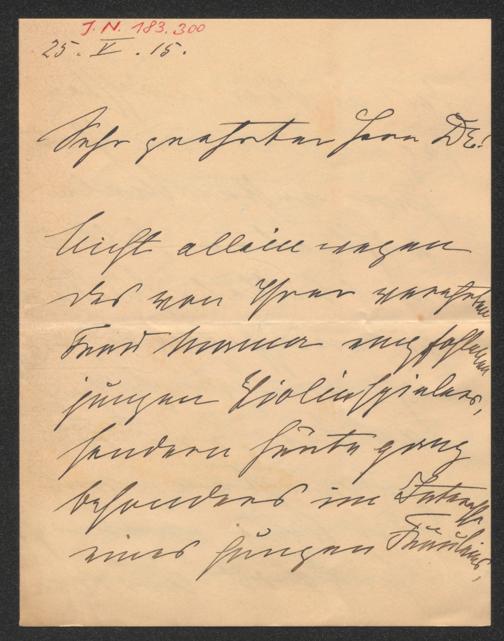 J.N. 183.300
25. V. 15.
Sehr geehrter Herr Dr!
Nicht allein wegen
des von Ihrer verehrten
Frau Mama empfohlenen
jungen Violinspielers,
sondern heute ganz
besonders im Interesse
eines jungen Fräuleins,